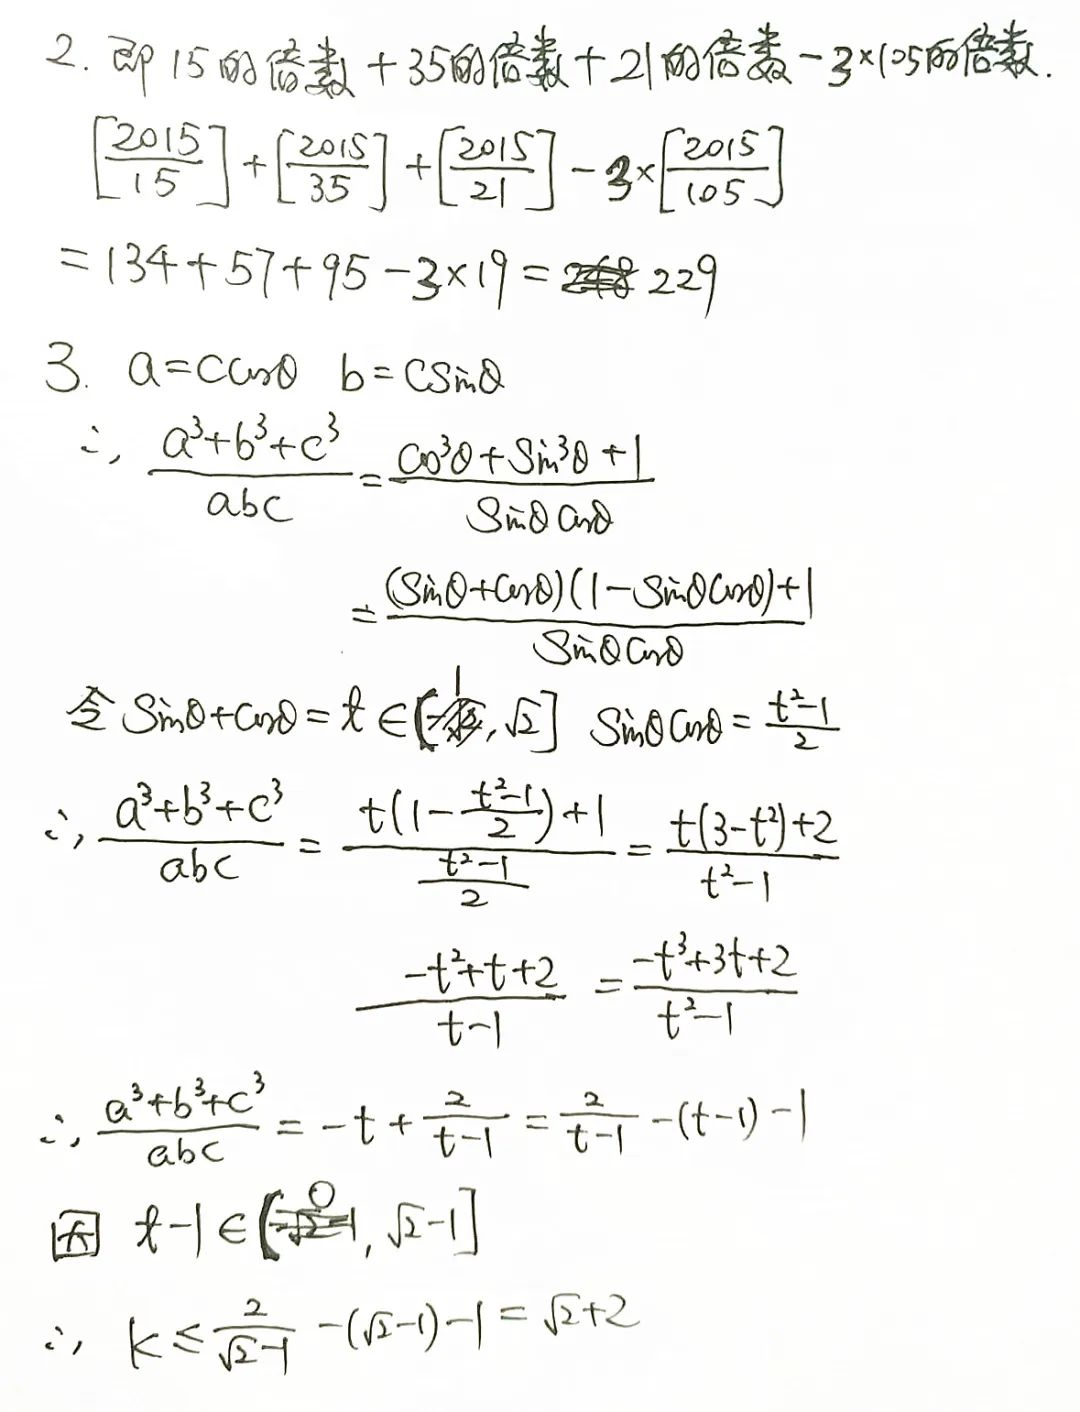 2. 即15的倍数+35的倍数+21的倍数-3×105的倍数.
[2015/15]+[2015/35]+[2015/21]-3×[2015/105]
=134+57+95-3×19=229
3. a=ccosθ b=csinθ
∴, (a³+b³+c³)/abc = (cos³θ+sin³θ+1)/(sinθcosθ)
= ((sinθ+cosθ)(1-sinθcosθ)+1)/(sinθcosθ)
令 sinθ+cosθ=t∈(1,√2] sinθcosθ=(t²-1)/2
∴, (a³+b³+c³)/abc = (t(1-(t²-1)/2)+1)/((t²-1)/2) = (t(3-t²)+2)/(t²-1)
(-t²+t+2)/(t-1) = (-t³+3t+2)/(t²-1)
∴, (a³+b³+c³)/abc = -t+2/(t-1) = 2/(t-1)-(t-1)-1
因 t-1∈(0,√2-1]
∴, k≤2/(√2-1)-(√2-1)-1=√2+2